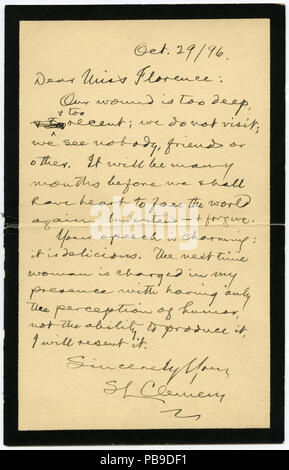 Oct. 29/96.
Dear Miss Florence:
Our wound is too deep,
& too recent; we do not visit;
we see nobody, friend or
other. It will be many
months before we shall
have heart to face the world
again. — & forgive.
Your speech is charming;
it is delicious. The next time
woman is charged in my
presence with having only
the perception of humor,
not the ability to produce it,
I will resent it.
Sincerely Yours
S L Clemens
alamy
Image ID: 1B9DF1
www.alamy.com